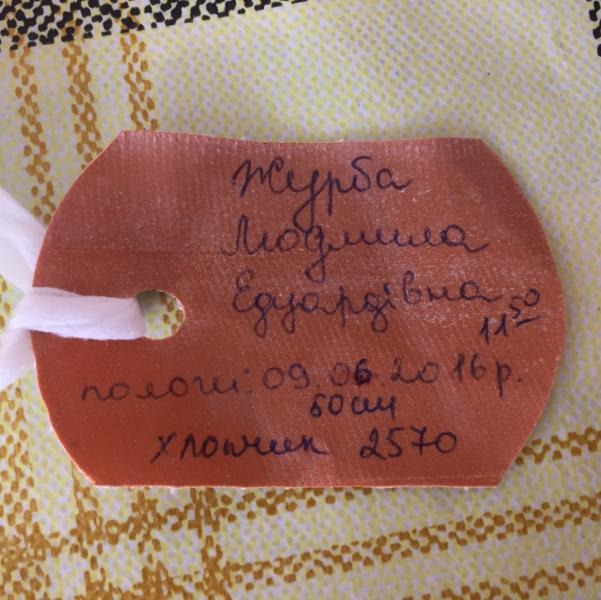 Журба
Людмила
Едуардівна
11 50
пологи: 09.06.2016 р.
50 см
хлопчик 2570